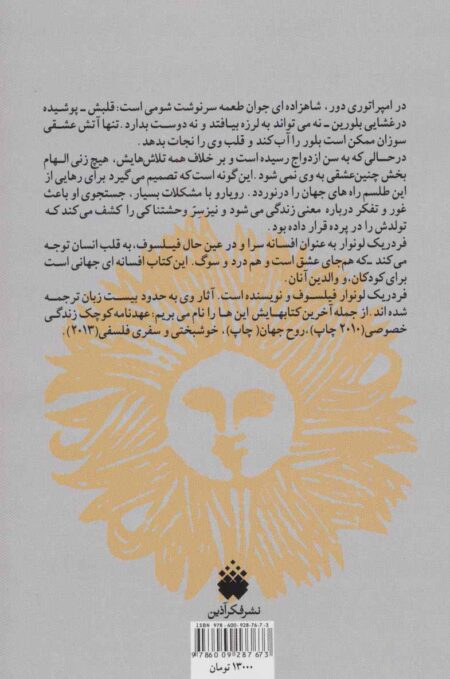 در امپراتوری دور، شاهزاده ای جوان طعمه سرنوشت شومی است؛ قلبش ـ پوشیده
درغشایی بلورین ـ نه می تواند به لرزه بیافتد و نه دوست بدارد. تنها آتش عشقی
سوزان ممکن است بلور را آب کند و قلب وی را نجات بدهد.
درحالی که به سن ازدواج رسیده است و بر خلاف همه تلاش‌هایش، هیچ زنی الهام
بخش چنین‌عشقی به وی نمی شود. این‌گونه است که تصمیم می‌گیرد برای رهایی از
این طلسم راه های جهان را درنوردد. رویارو با مشکلات بسیار، جستجوی او باعث
غور و تفکر درباره معنی زندگی می شود و نیز سِرّ وحشتناکی را کشف می‌کند که
تولدش را در پرده قرار داده بود.
فردریک لونوار به عنوان افسانه سرا و در عین حال فیلسوف، به قلب انسان توجه
می‌کند ـ که هم‌جای عشق است و هم درد و سوگ. این کتاب افسانه ای جهانی است
برای کودکان، و والدین آنان.
فردریک لونوار فیلسوف و نویسنده است. آثار وی به حدود بیست زبان ترجمه
شده اند. از جمله آخرین کتابهایش این ها را نام می بریم: عهدنامه کوچک زندگی
خصوصی(۲۰۱۰ چاپ)، روح جهان( چاپ)، خوشبختی و سفری فلسفی(۲۰۱۳).
نشر فکرآذین
ISBN 978-600-928-76-7-3
9 786009 287673
۱۳۰۰۰ تومان